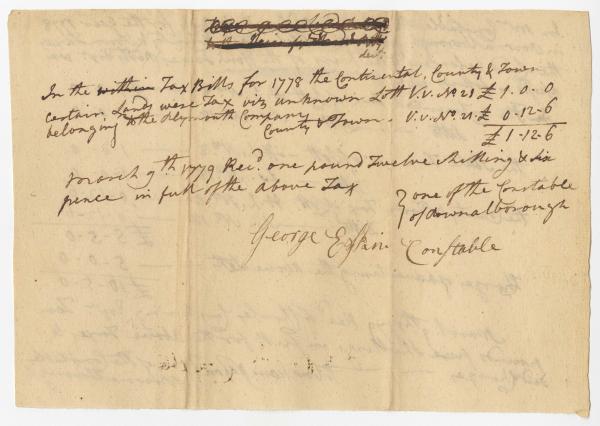 In the within Tax Bills for 1778 the Continental, County & Town
Certain Lands were Tax viz unknown Lott V.V. No. 21 £ 1-0-0
belonging to the Plymouth Company County & Town. V.V. No. 21. £ 0-12-6
£ 1-12-6
March 9th 1779 Recd. one pound Twelve Shilling & six
pence in full of the above Tax
} one of the Constable
of downalborough
George Constable